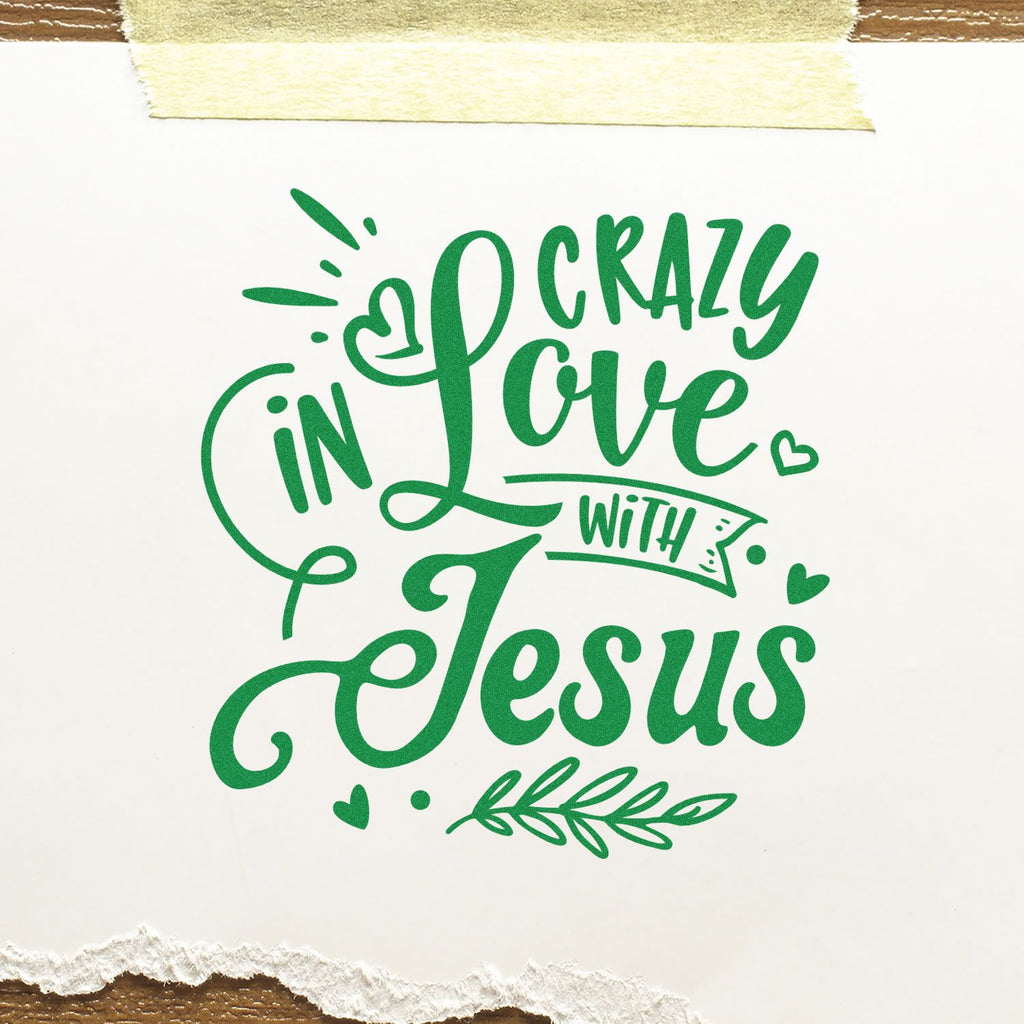 CRAZY
Love
iN
WiTH
Jesus